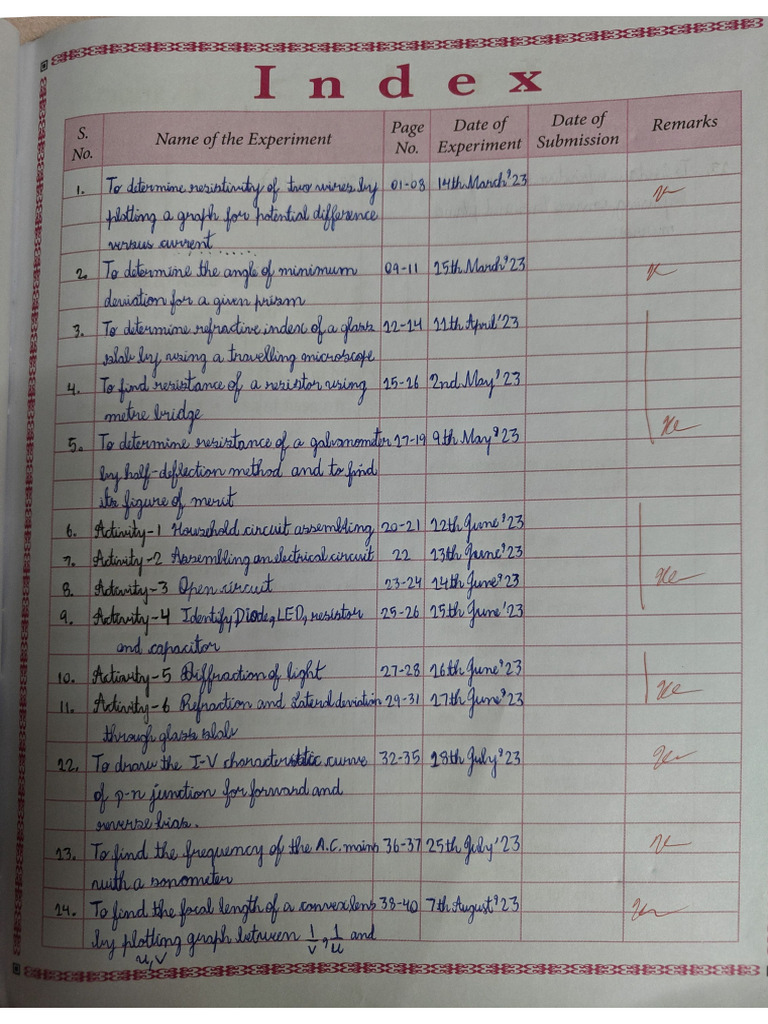 Index
S. No. Name of the Experiment Page No. Date of Experiment Date of Submission Remarks
1. To determine resistivity of two wires by 01-08 14th March'23
plotting a graph for potential difference
versus current
2. To determine the angle of minimum 09-11 15th March'23
deviation for a given prism
3. To determine refractive index of a glass 12-14 11th April'23
slab by using a travelling microscope
4. To find resistance of a resistor using 15-16 2nd May'23
metre bridge
5. To determine resistance of a galvanometer 17-19 9th May'23
by half-deflection method and to find
its figure of merit
6. Activity-1 Household circuit assembling 20-21 12th June'23
7. Activity-2 Assembling an electrical circuit 22 13th June'23
8. Activity-3 Open circuit 23-24 14th June'23
9. Activity-4 Identify Diode, LED, resistor 25-26 15th June'23
and capacitor
10. Activity-5 Diffraction of light 27-28 16th June'23
11. Activity-6 Refraction and Lateral deviation 29-31 17th June'23
through glass slab
12. To draw the I-V characteristic curve 32-35 18th July'23
of p-n junction for forward and
reverse bias.
13. To find the frequency of the A.C. mains 36-37 25th July'23
with a sonometer
14. To find the focal length of a convex lens 38-40 7th August'23
by plotting graph between 1/v, 1/u and
u,v